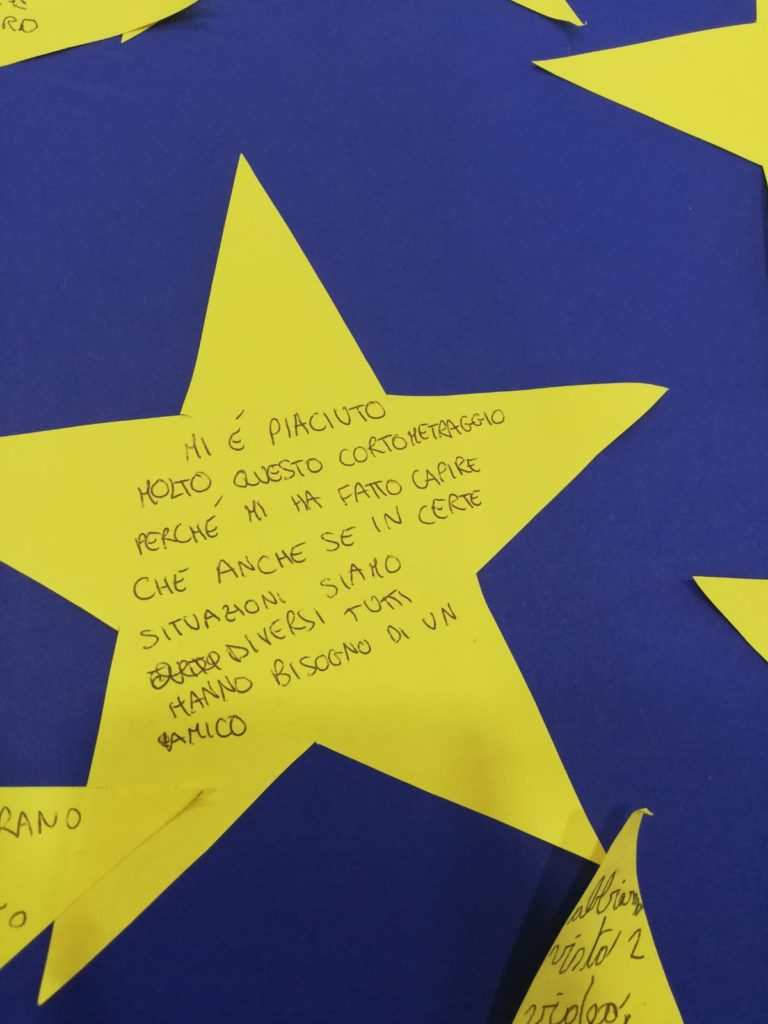 RO
MI É PIACIUTO
MOLTO QUESTO CORTOMETRAGGIO
PERCHÉ MI HA FATTO CAPIRE
CHE ANCHE SE IN CERTE
SITUAZIONI SIAMO
DIVERSI TUTTI
HANNO BISOGNO DI UN
AMICO
RANO
TO
abbiamo
visto 2
video,